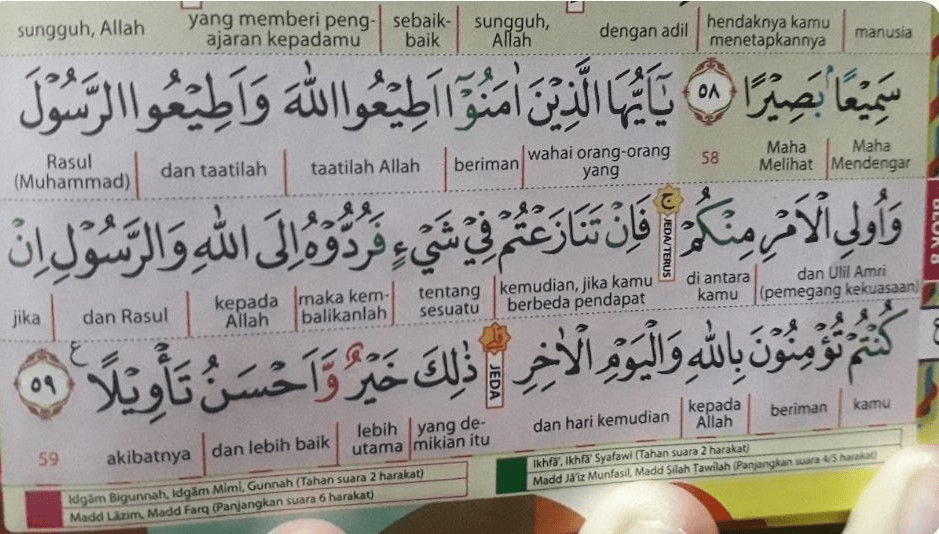 sungguh, Allah yang memberi peng-ajaran kepadamu sebaik-baik sungguh, Allah dengan adil hendaknya kamu menetapkannya manusia
سَمِيْعًاۢ بَصِيْرًا ٥٨ يٰٓاَيُّهَا الَّذِيْنَ اٰمَنُوْٓا اَطِيْعُوا اللّٰهَ وَاَطِيْعُوا الرَّسُوْلَ
Rasul (Muhammad) dan taatilah taatilah Allah beriman wahai orang-orang yang 58 Maha Melihat Maha Mendengar
وَاُولِى الْاَمْرِ مِنْكُمْۚ JEDA/TERUS فَاِنْ تَنَازَعْتُمْ فِيْ شَيْءٍ فَرُدُّوْهُ اِلَى اللّٰهِ وَالرَّسُوْلِ اِنْ
BLOK 8
jika dan Rasul kepada Allah maka kem-balikanlah tentang sesuatu kemudian, jika kamu berbeda pendapat di antara kamu dan Ulil Amri (pemegang kekuasaan)
كُنْتُمْ تُؤْمِنُوْنَ بِاللّٰهِ وَالْيَوْمِ الْاٰخِرِۗ JEDA ذٰلِكَ خَيْرٌ وَّاَحْسَنُ تَأْوِيْلًا ع ٥٩
59 akibatnya dan lebih baik lebih utama yang de-mikian itu dan hari kemudian kepada Allah beriman kamu
Idgām Bigunnah, Idgām Mimi, Gunnah (Tahan suara 2 harakat)
Madd Lāzim, Madd Farq (Panjangkan suara 6 harakat)
Ikhfā', Ikhfā' Syafawi (Tahan suara 2 harakat)
Madd Jā'iz Munfasil, Madd Ṣilah Ṭawīlah (Panjangkan suara 4/5 harakat)